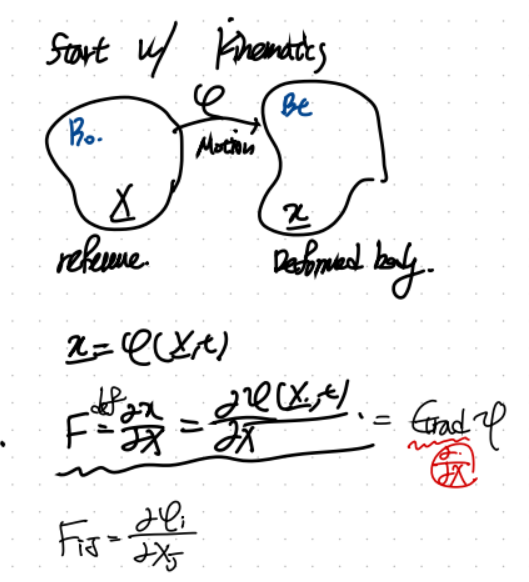 Start w/ Kinematics
φ
B₀.
Bt
Motion
X
x
reference.
Deformed body.
x = φ(X,t)
F ≝ ∂x/∂X = ∂φ(X,t)/∂X. = Grad φ
∂·/∂X
F_iJ = ∂φ_i/∂X_J